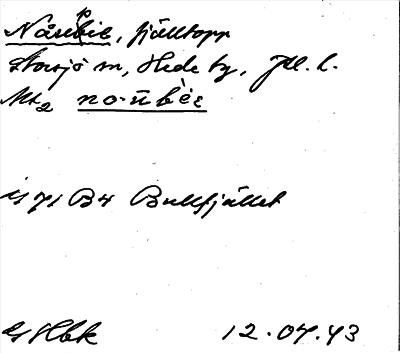 Nåsubie, fjälltopp
Storsjö sn, Hede tg, Jtl. l.
Mt2 no·ūbèe
is 71 B4 Bullfjället
G Hbk 12.04.43